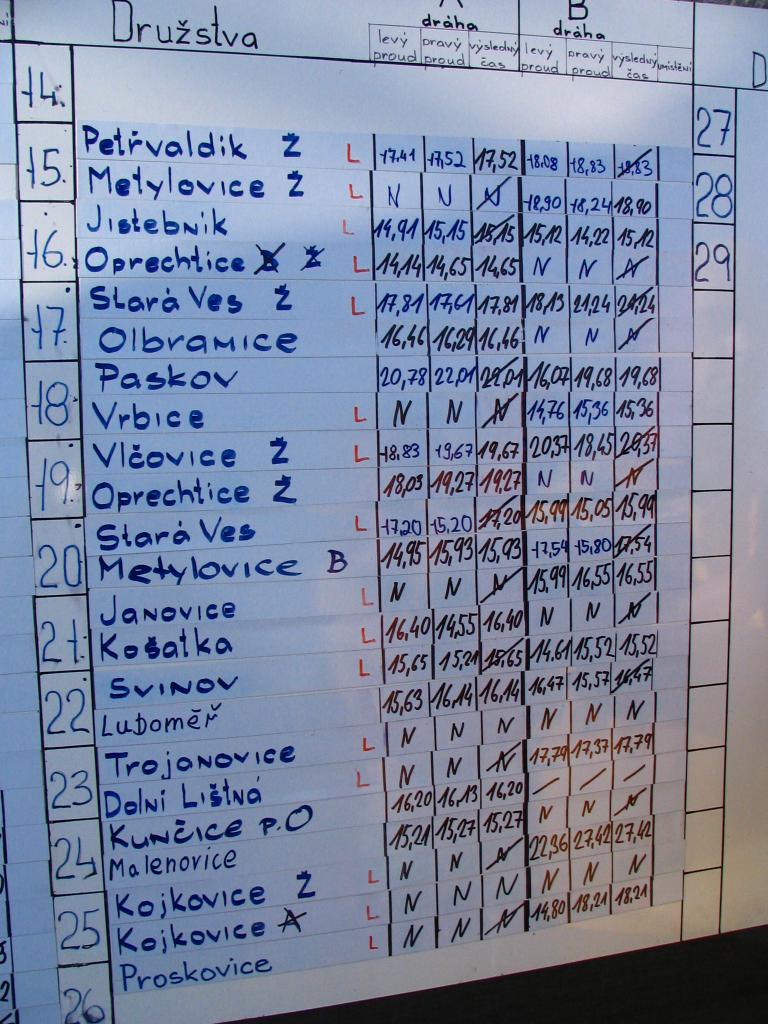 Družstva
A B
dráha dráha
levý proud pravý proud výsledný čas levý proud pravý proud výsledný čas umístění
14.
27
15. Petřvaldík Ž L 17,41 17,52 17,52 18,08 18,83 18,83
Metylovice Ž L N N N 18,90 18,24 18,90
28
16. Jistebník L 14,91 15,15 15,15 15,12 14,22 15,12
Oprechtice B Ž L 14,14 14,65 14,65 N N N
29
17. Stará Ves Ž L 17,81 17,61 17,81 18,13 21,24 21,24
Olbramice 16,46 16,29 16,46 N N N
18. Paskov 20,78 22,01 22,01 16,07 19,68 19,68
Vrbice L N N N 14,76 15,36 15,36
19. Vlčovice Ž L 18,83 19,67 19,67 20,37 18,45 20,37
Oprechtice Ž 18,03 19,27 19,27 N N N
20 Stará Ves L 17,20 15,20 17,20 15,99 15,05 15,99
Metylovice B 14,95 15,93 15,93 17,54 15,80 17,54
21. Janovice L N N N 15,99 16,55 16,55
Košatka L 16,40 14,55 16,40 N N N
22 Svinov L 15,65 15,21 15,65 14,61 15,52 15,52
Luboměř 15,63 16,14 16,14 16,47 15,57 16,47
23 Trojanovice L N N N N N N
Dolní Lištná L N N N 17,79 17,37 17,79
24 Kunčice p.O 16,20 16,13 16,20 / / /
Malenovice 15,21 15,27 15,27 N N N
25 Kojkovice Ž L N N N 22,36 27,42 27,42
Kojkovice A L N N N N N N
26 Proskovice L N N N 14,80 18,21 18,21